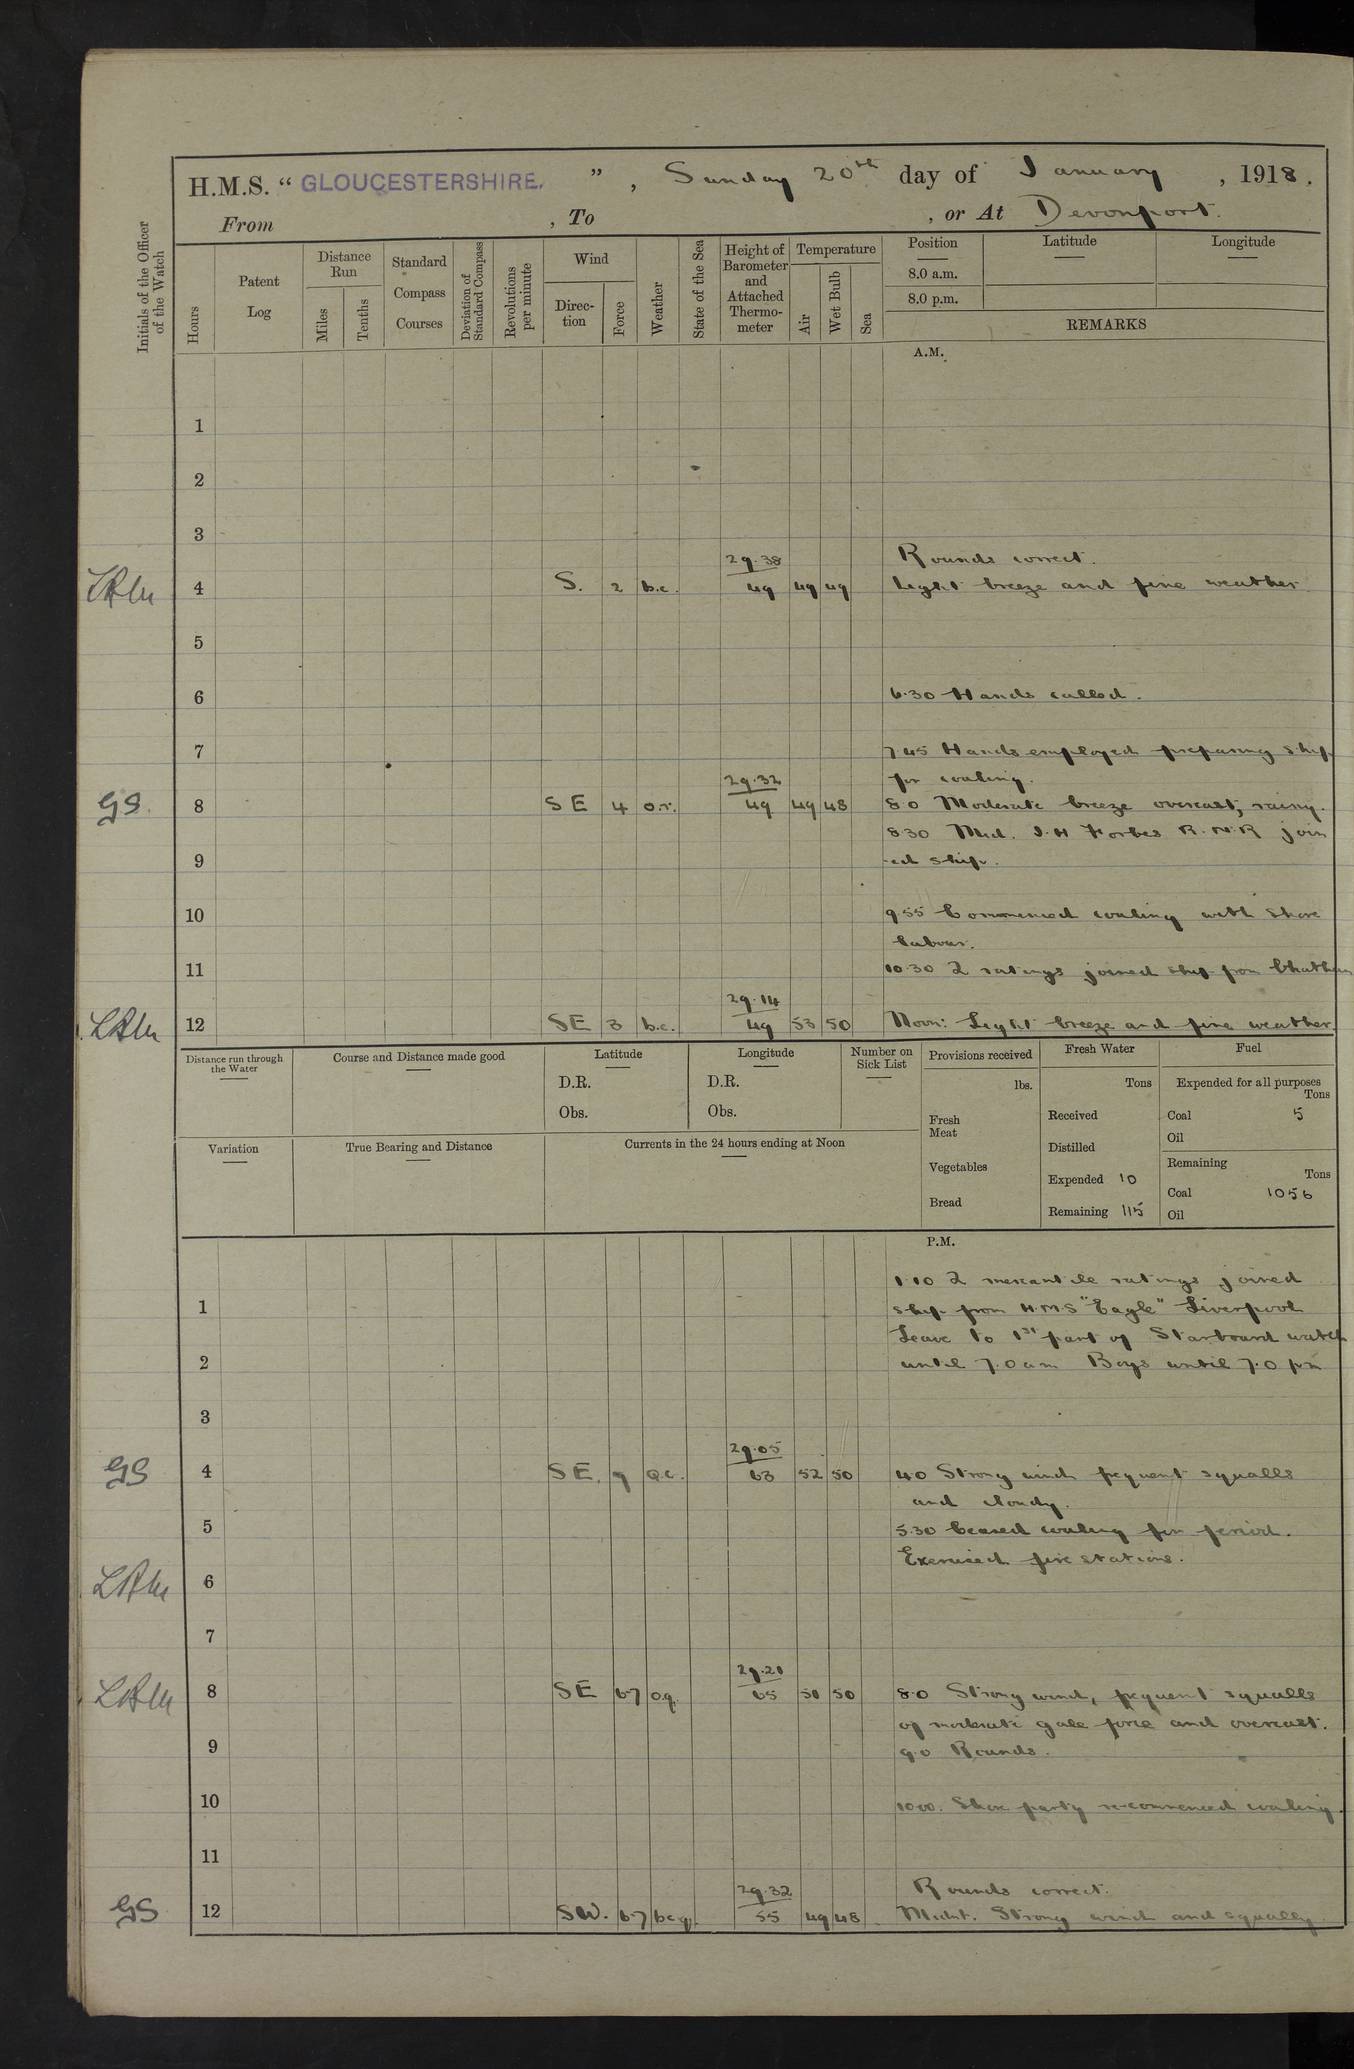 H.M.S. " GLOUCESTERSHIRE. " , Sunday 20th day of January , 1918 .
From , To , or At Devonport.
Initials of the Officer of the Watch
Hours
Patent Log
Distance Run
Miles
Tenths
Standard Compass Courses
Deviation of Standard Compass
Revolutions per minute
Wind
Direc-tion
Force
Weather
State of the Sea
Height of Barometer and Attached Thermo-meter
Temperature
Air
Wet Bulb
Sea
Position
Latitude
Longitude
8.0 a.m.
8.0 p.m.
REMARKS
A.M.
1
2
3
29.38 Rounds correct.
4 S. 2 b.c. 49 49 49 Light breeze and fine weather
5
6 6.30 Hands called.
7 7.45 Hands employed preparing ship
29.32 for coaling.
GS 8 SE 4 o.r. 49 49 48 8.0 Moderate breeze overcast, rainy.
8.30 Mid. J.H Forbes R.N.R join
9 -ed ship.
10 9.55 Commenced coaling with shore
labour.
11 10.30 2 ratings joined ship from Chatham
29.14
12 SE 3 b.c. 49 53 50 Noon: Light breeze and fine weather.
Distance run through the Water
Course and Distance made good
Latitude
D.R.
Obs.
Longitude
D.R.
Obs.
Number on Sick List
Provisions received
lbs.
Fresh Meat
Vegetables
Bread
Fresh Water
Tons
Received
Distilled
Expended 10
Remaining 115
Fuel
Expended for all purposes
Tons
Coal 5
Oil
Remaining
Tons
Coal 1056
Oil
Variation
True Bearing and Distance
Currents in the 24 hours ending at Noon
P.M.
1.10 2 mercantile ratings joined
1 ship from H.M.S "Eagle" Liverpool
Leave to 1st part of Starboard watch
2 until 7.0 am Boys until 7.0 pm
3
29.05
GS 4 SE. 7 q.c. 63 52 50 4.0 Strong wind frequent squalls
and cloudy.
5 5.30 Ceased coaling for period.
Exercised fire stations.
6
7
29.20
8 SE 6-7 o.q. 65 50 8.0 Strong wind, frequent squalls
of moderate gale force and overcast.
9 9.0 Rounds.
10 10.00. Shore party re-commenced coaling.
11
29.32 Rounds correct.
GS 12 SW. 6-7 bcq. 55 49 48 Midnt. Strong wind and squally